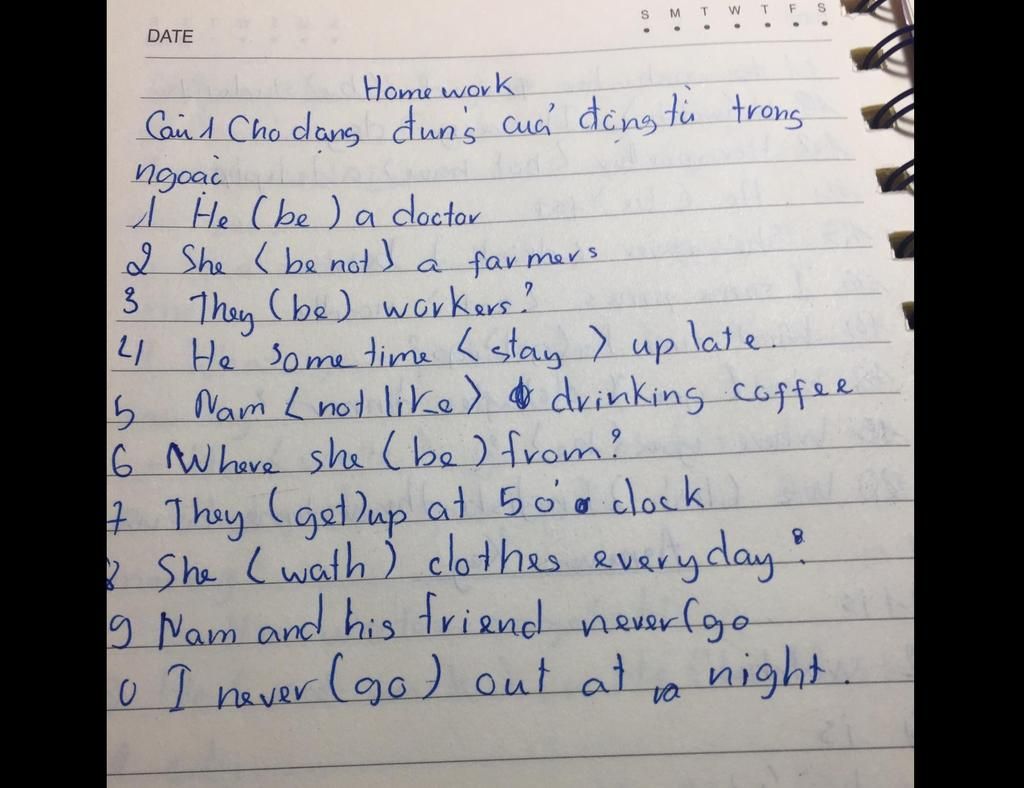 S M T W T F S
DATE
Homework
Câu 1 Cho dạng đung cuả động từ trong
ngoạc
1 He (be) a doctor
2 She (be not) a farmers
3 They (be) workers?
4 He some time (stay) up late.
5 Nam (not like) drinking coffee
6 Where she (be) from?
7 They (get) up at 5 o' clock
8 She (wath) clothes everyday?
9 Nam and his friend never (go
0 I never (go) out at night.